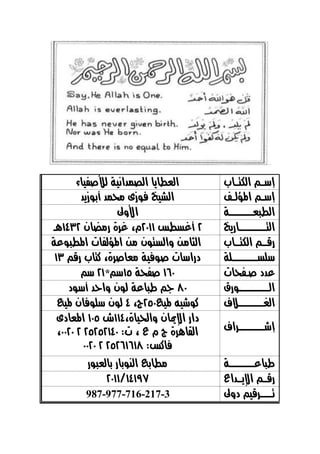 بسم الله الرحمن الرحيم
Say, He Allah is One.
قل هو الله أحد
Allah is everlasting.
الله الصمد
He has never given birth.
Nor was He born.
لم يلد ولم يولد
And there is no equal to Him.
ولم يكن له كفوا أحد
إسـم الكتـاب العطايا الصمدانية للأصفياء
إسـم المؤلـف الشيخ فوزى محمد أبوزيد
الطبعـــــــة الأولى
التـــــــاريخ ٢ أغسطس ٢٠١١م، غرة رمضان ١٤٣٢هـ
رقـم الكتــاب الثامن والستون من المؤلفات المطبوعة
سلســـــــلة دراسات صوفية معاصرة، كتاب رقم ١٣
عدد صفحات ١٦٠ صفحة ١٥سم*٢١ سم
الــــــــورق ٨٠ جم طباعة لون واحد أسود
الغــــــلاف كوشيه لميع٢٥٠ج، ٤ لون سلوفان لميع
إشـــــــراف دار الإيمان والحياة،١١٤ش ١٠٥ المعادى
القاهرة ج م ع ، ت: ٢٥٢٥٢١٤٠ ٢ ٠٠٢٠،
فاكس: ٢٥٢٦١٦١٨ ٢ ٠٠٢٠
طباعـــــــة مطابع النوبار بالعبور
رقـم الإيـداع ٢٠١١/١٤١٩٧
تــــرقيم دولى 987-977-716-217-3